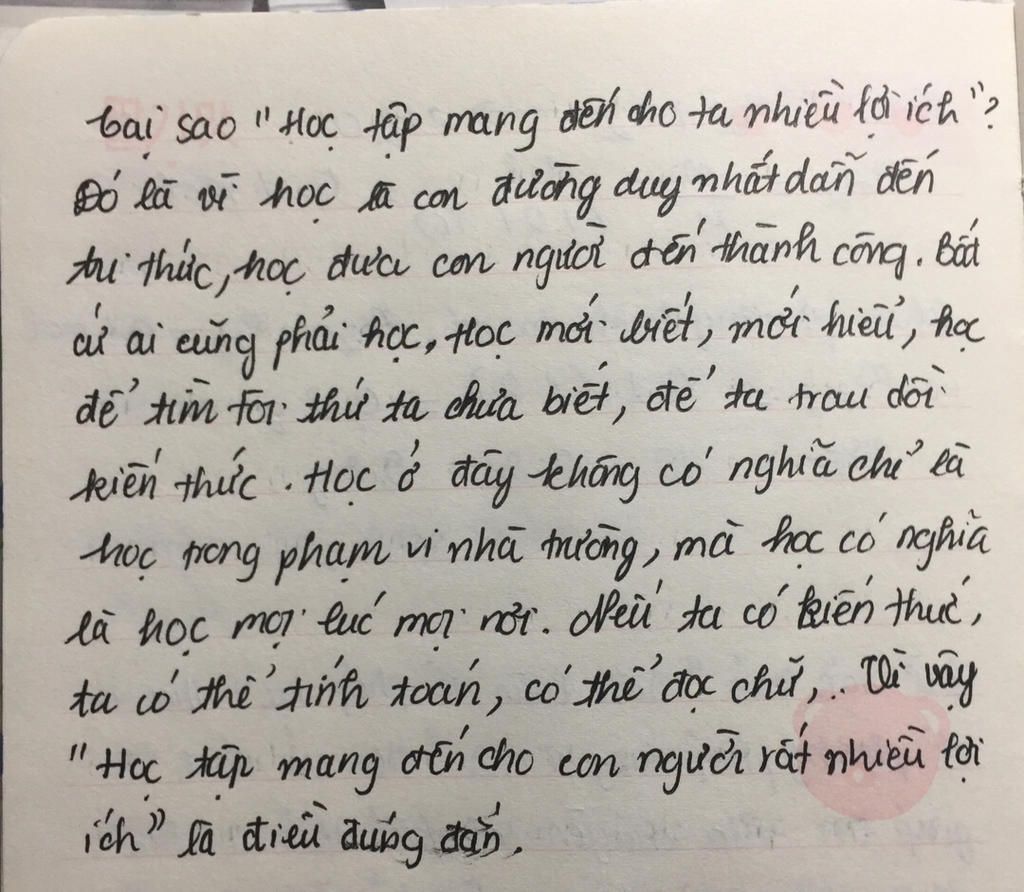 tại sao "Học tập mang đến cho ta nhiều lợi ích"?
Đó là vì học là con đường duy nhất dẫn đến
tri thức, học đưa con người đến thành công. Bất
cứ ai cũng phải học, Học mới biết, mới hiểu, học
để tìm tòi thứ ta chưa biết, để ta trau dồi
kiến thức. Học ở đây không có nghĩa chỉ là
học trong phạm vi nhà trường, mà học có nghĩa
là học mọi lúc mọi nơi. Nếu ta có kiến thức,
ta có thể tính toán, có thể đọc chữ,.. Vì vậy
"Học tập mang đến cho con người rất nhiều lợi
ích" là điều đúng đắn.